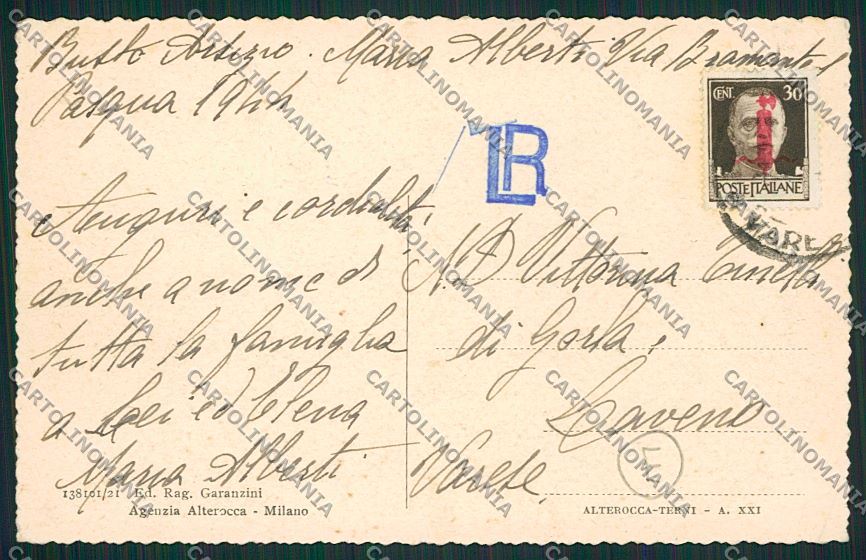 Busto Arsizio. Maria Alberti Via Bramante 1
Pasqua 1944
Auguri e cordialità,
anche a nome di
tutta la famiglia
a Lei ed Elena
Maria Alberti
138101/21 Ed. Rag. Garanzini
Agenzia Alterocca - Milano
LR
CENT. 30
POSTE ITALIANE
VARES
N.D. Vittorina
di Gorla,
Laveno
Varese
ALTEROCCA-TERNI - A. XXI
CARTOLINOMANIA